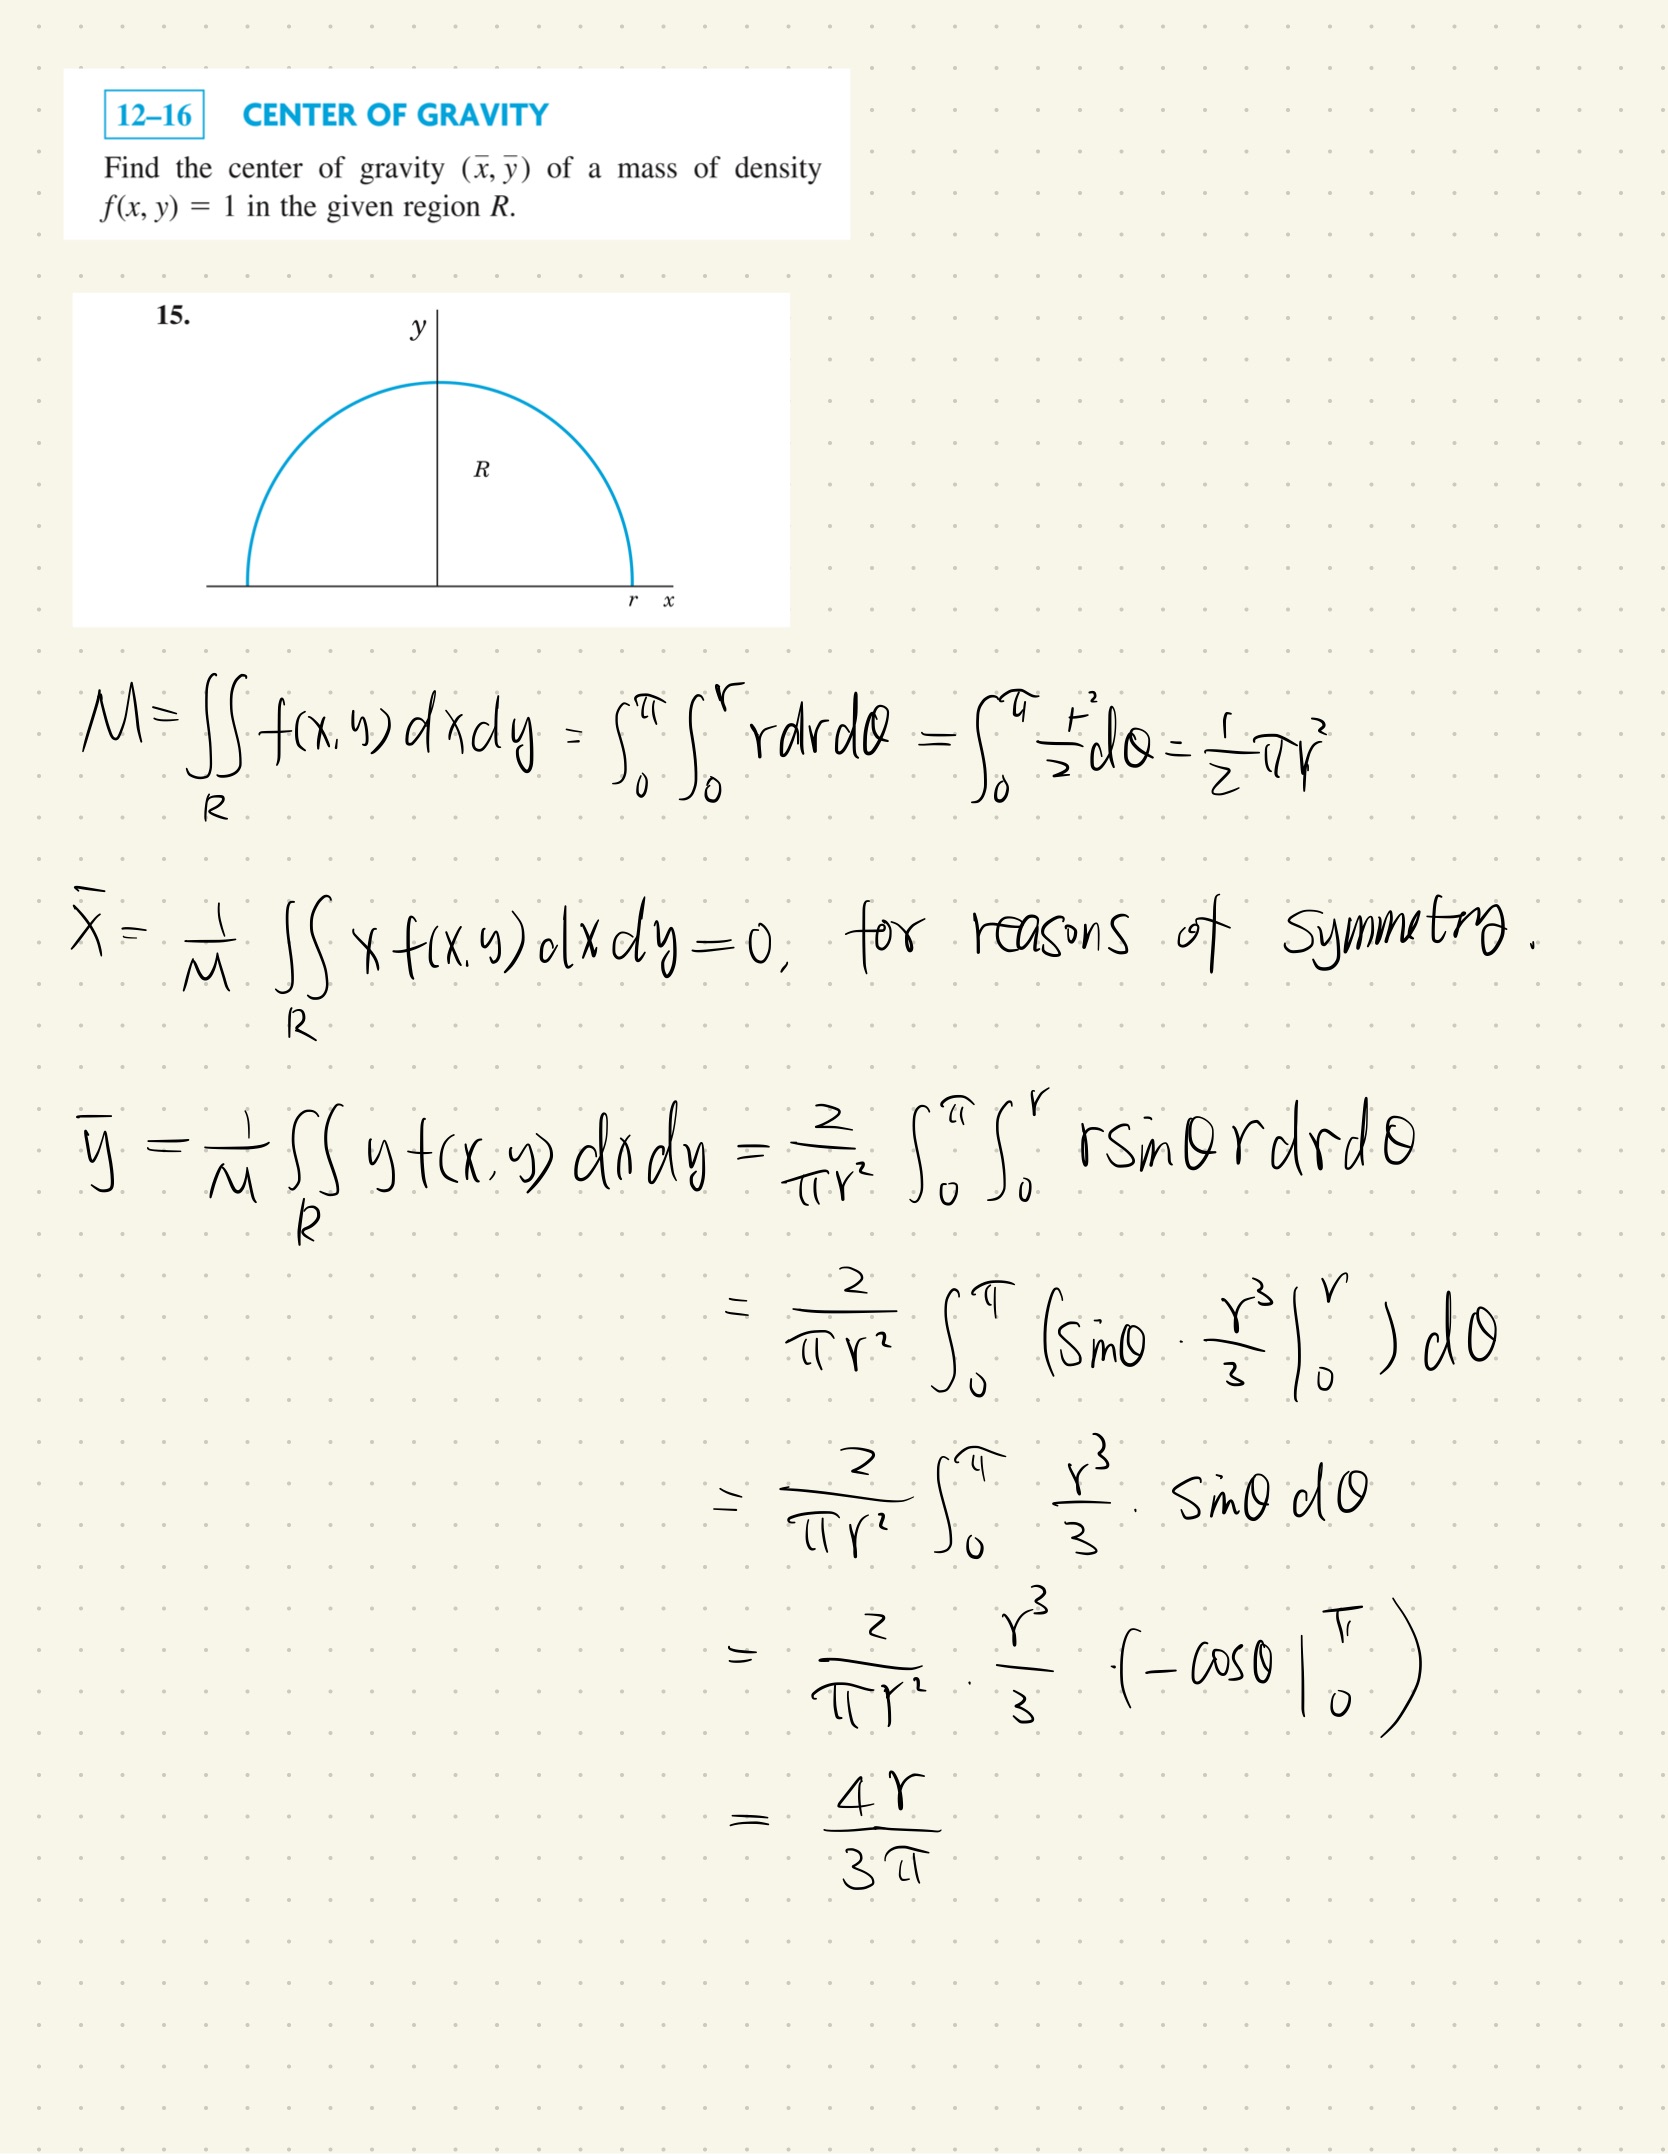 12–16 CENTER OF GRAVITY
Find the center of gravity (x̄, ȳ) of a mass of density
f(x, y) = 1 in the given region R.
15.
y
R
r x
M = ∬_R f(x,y) dxdy = ∫_0^π ∫_0^r r dr dθ = ∫_0^π r²/2 dθ = 1/2 πr²
x̄ = 1/M ∬_R x f(x,y) dxdy = 0, for reasons of symmetry.
ȳ = 1/M ∬_R y f(x,y) dxdy = 2/(πr²) ∫_0^π ∫_0^r r sinθ r dr dθ
= 2/(πr²) ∫_0^π (sinθ · r³/3 |_0^r) dθ
= 2/(πr²) ∫_0^π r³/3 · sinθ dθ
= 2/(πr²) · r³/3 · (−cosθ |_0^π)
= 4r/(3π)